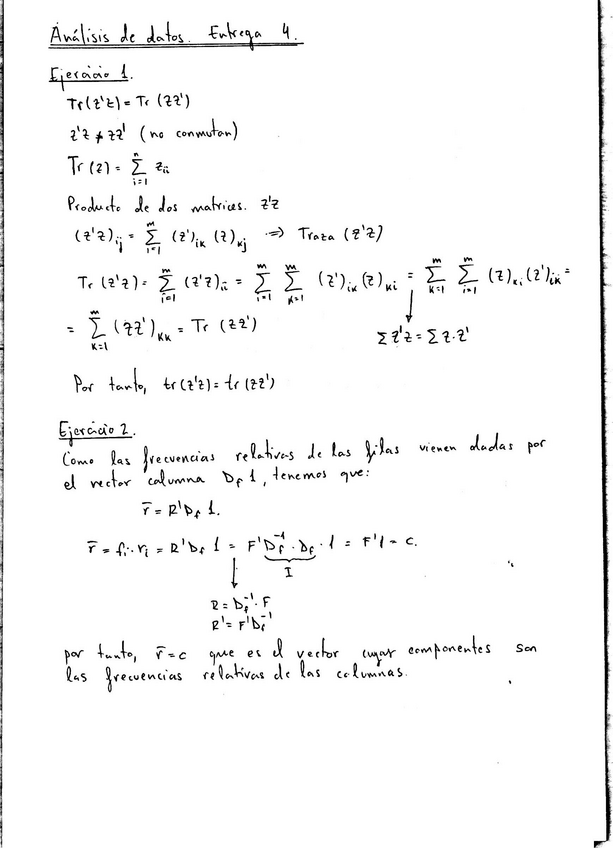 Análisis de datos. Entrega 4.
Ejercicio 1.
Tr(z'z) = Tr (zz')
z'z ≠ zz' (no conmutan)
Tr (z) = ∑_{i=1}^{n} z_{ii}
Producto de dos matrices. z'z
(z'z)_{ij} = ∑_{i=1}^{m} (z')_{ik} (z)_{kj} ⇒ Traza (z'z)
Tr (z'z) = ∑_{i=1}^{m} (z'z)_{ii} = ∑_{i=1}^{m} ∑_{k=1}^{m} (z')_{ik} (z)_{ki} = ∑_{k=1}^{m} ∑_{i=1}^{m} (z)_{ki} (z')_{ik} =
= ∑_{k=1}^{m} (zz')_{kk} = Tr (zz')
∑ z'z = ∑ z·z'
Por tanto, tr(z'z) = tr(zz')
Ejercicio 2.
Como las frecuencias relativas de las filas vienen dadas por
el vector columna D_f 1, tenemos que:
r̄ = R'D_f 1.
r̄ = f_i · r_i = R'D_f 1 = F'D_f^{-1} · D_f · 1 = F'1 = c.
I
R = D_f^{-1} · F
R' = F'D_f^{-1}
por tanto, r̄ = c que es el vector cuyas componentes son
las frecuencias relativas de las columnas.